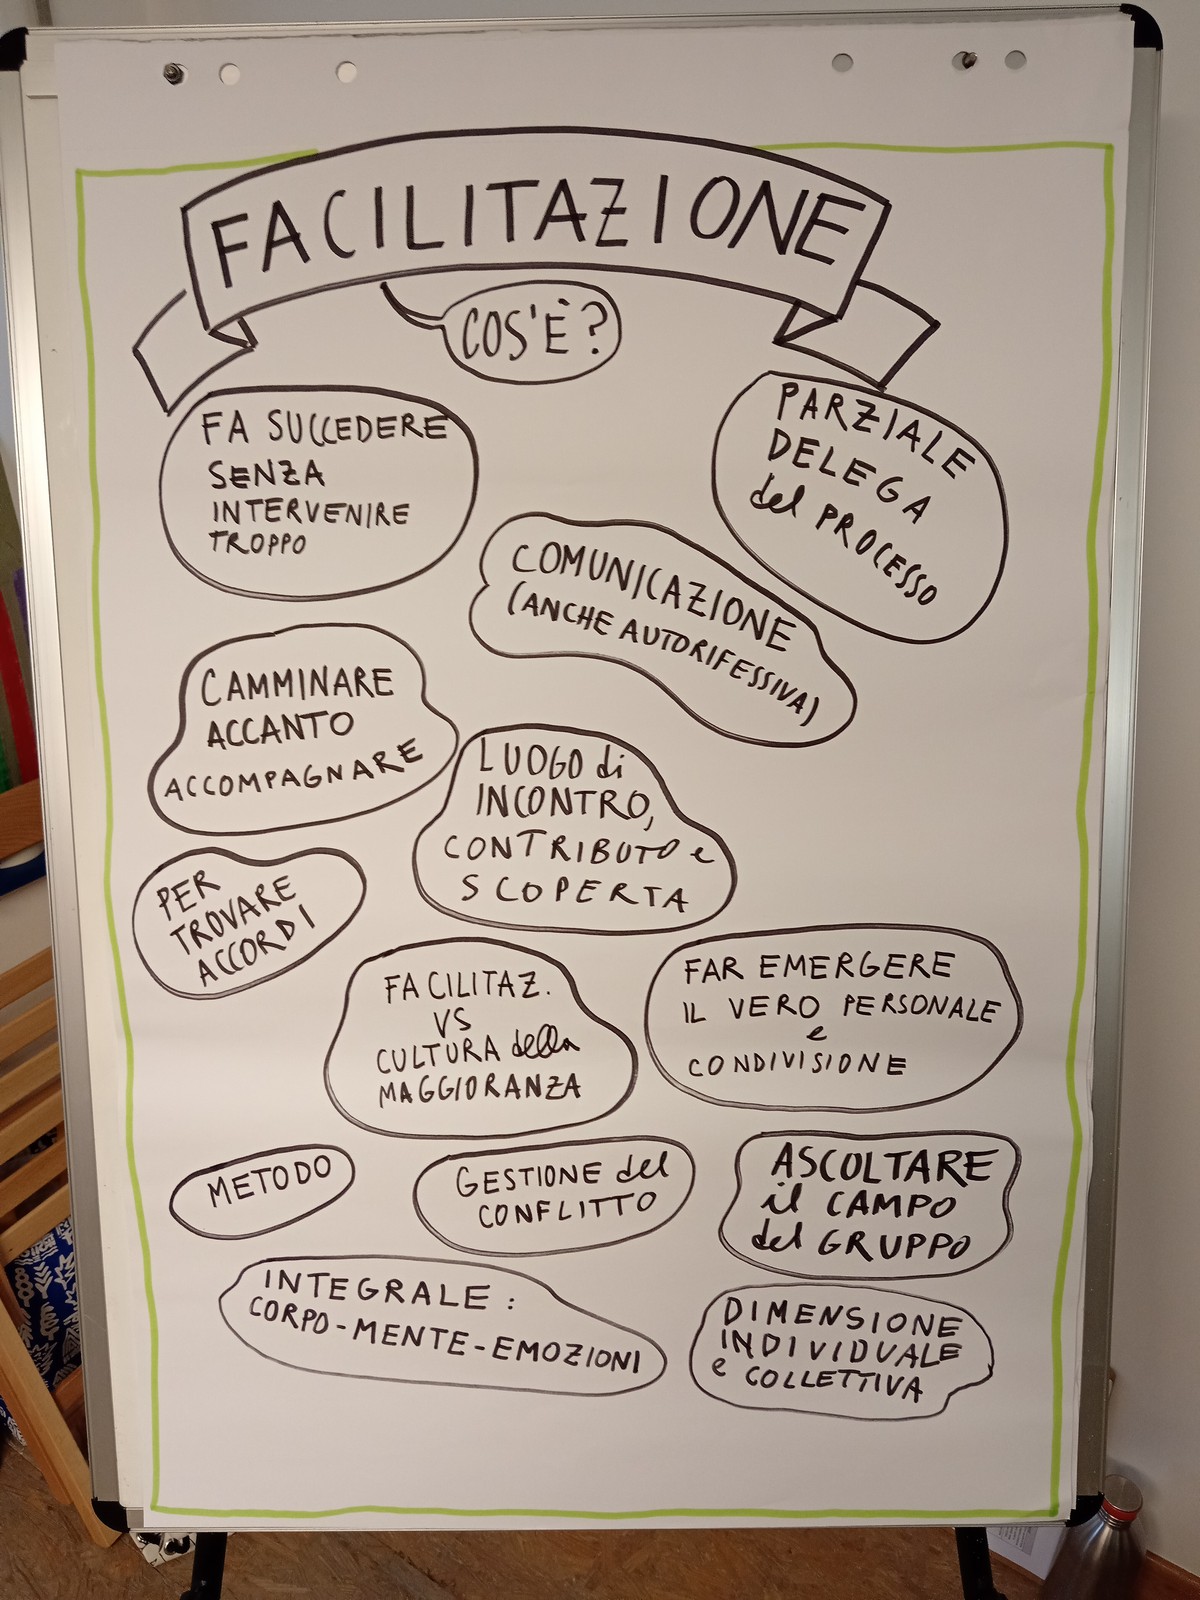 FACILITAZIONE
COS'È?
FA SUCCEDERE
SENZA
INTERVENIRE
TROPPO
PARZIALE
DELEGA
del PROCESSO
COMUNICAZIONE
(ANCHE AUTORIFESSIVA)
CAMMINARE
ACCANTO
ACCOMPAGNARE
LUOGO di
INCONTRO,
CONTRIBUTO e
SCOPERTA
PER
TROVARE
ACCORDI
FACILITAZ.
VS
CULTURA della
MAGGIORANZA
FAR EMERGERE
IL VERO PERSONALE
e
CONDIVISIONE
METODO
GESTIONE del
CONFLITTO
ASCOLTARE
il CAMPO
del GRUPPO
INTEGRALE:
CORPO-MENTE-EMOZIONI
DIMENSIONE
INDIVIDUALE
e COLLETTIVA